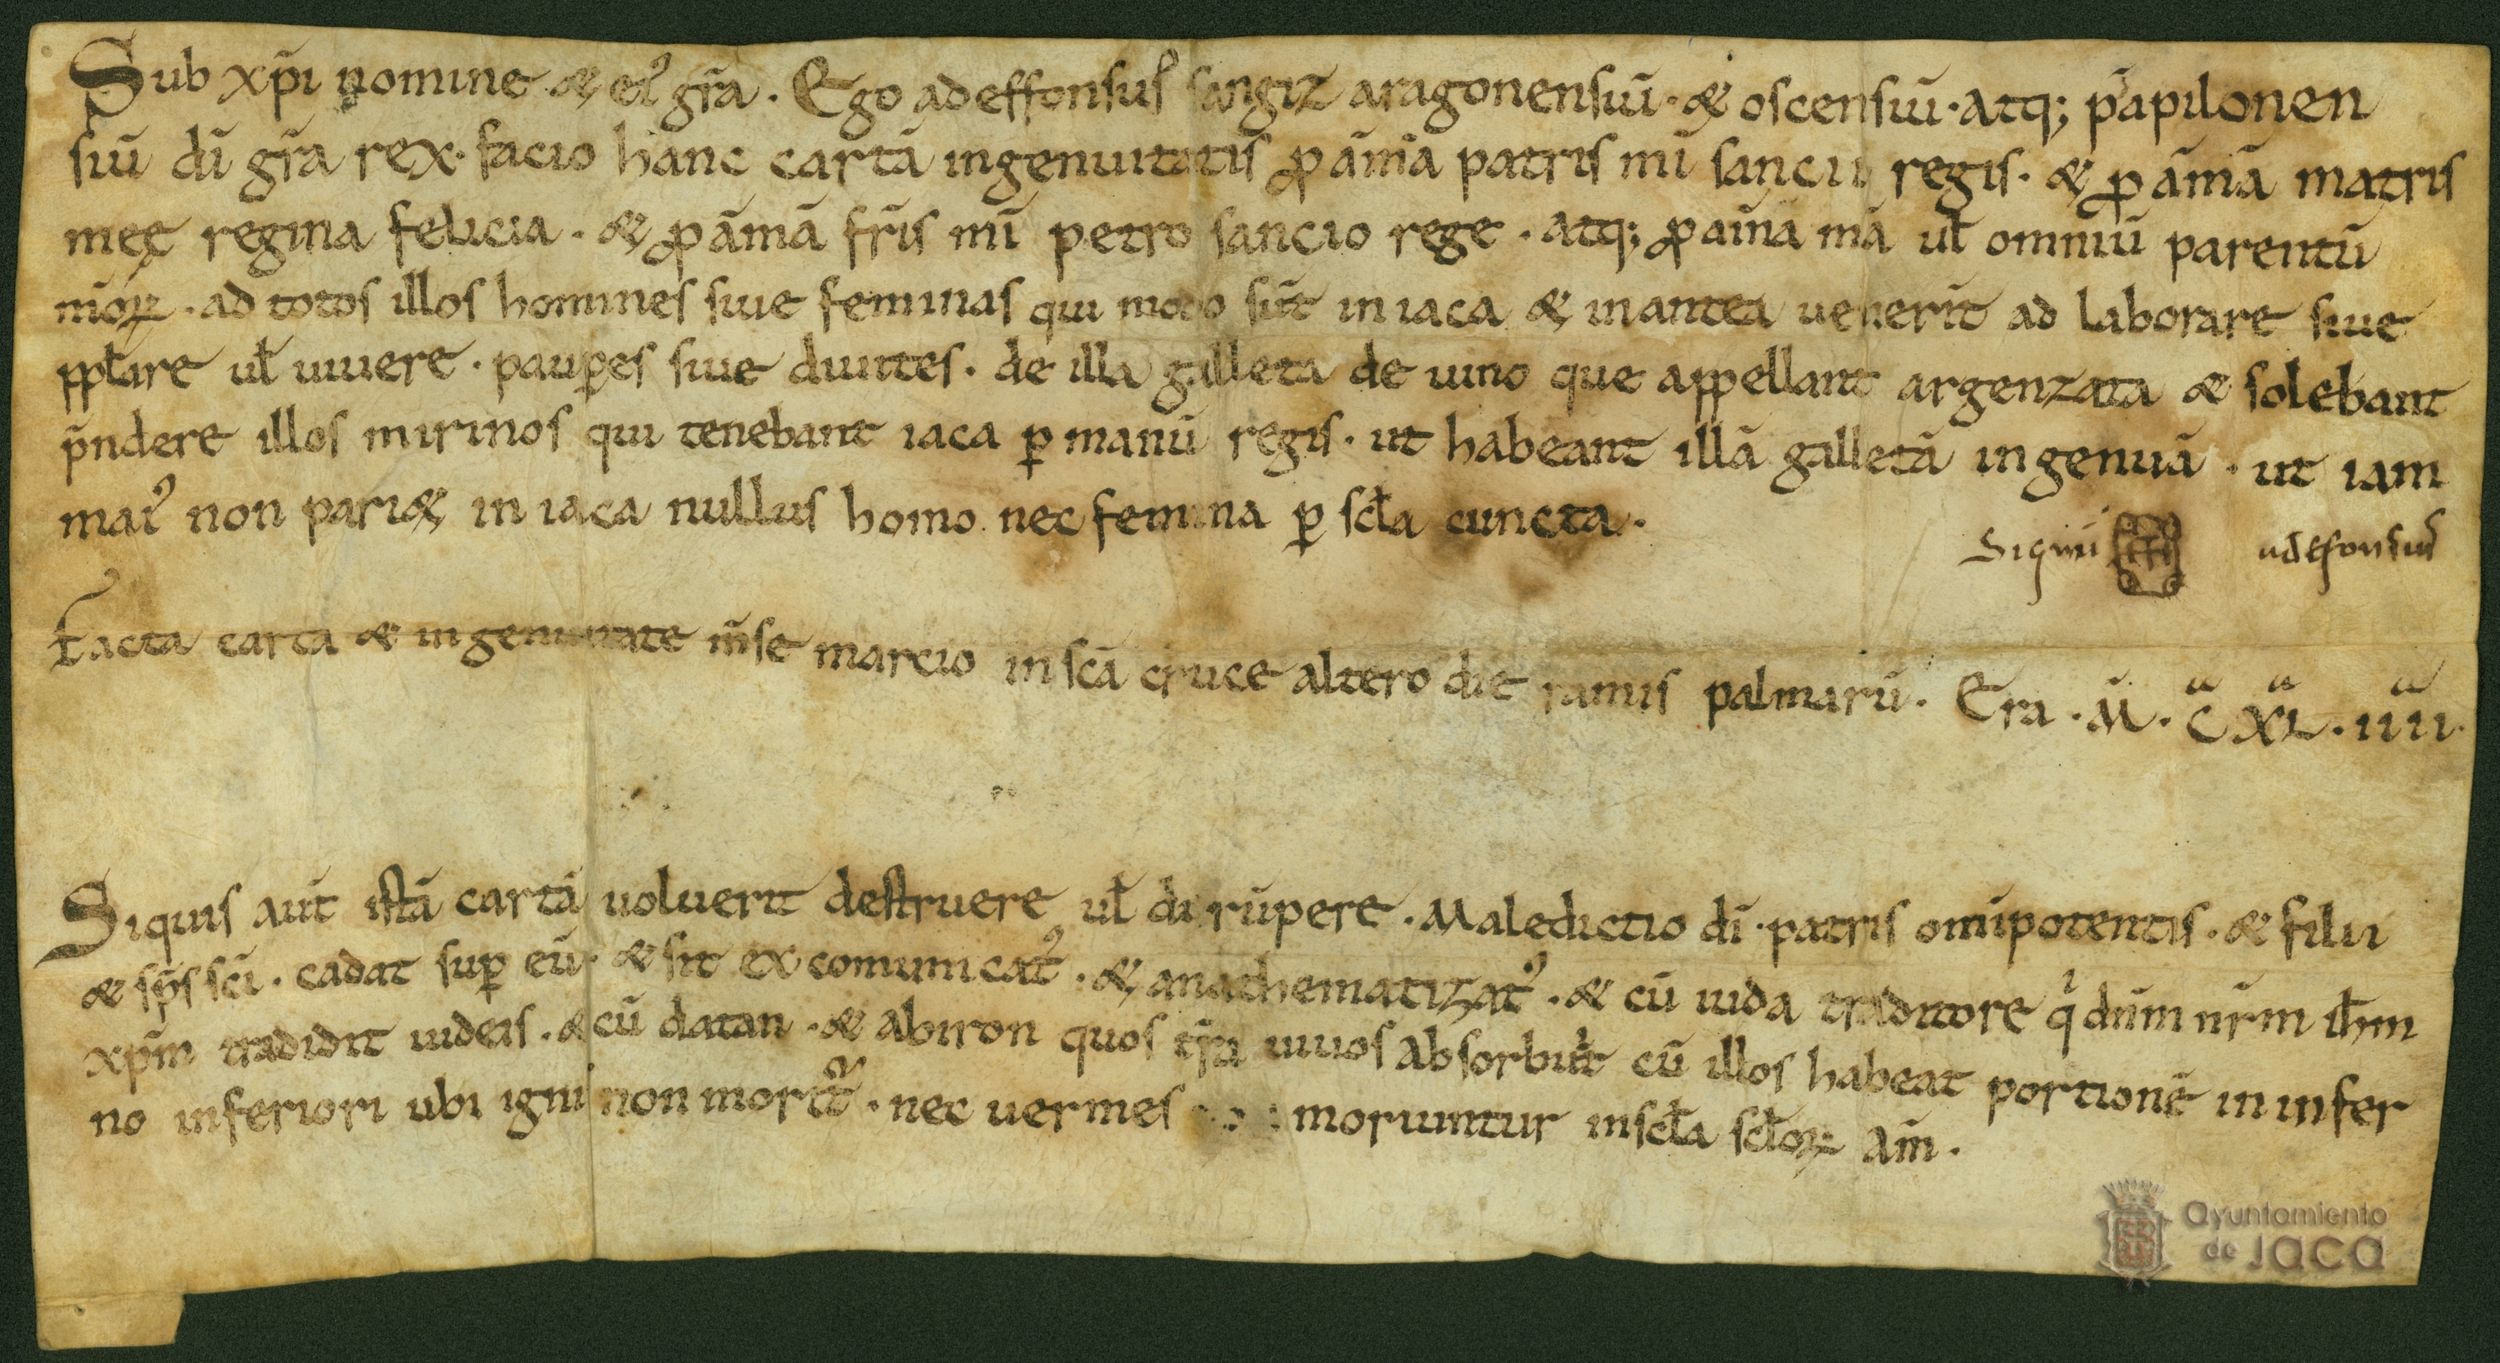 Sub xp̄i nomine & ei᾽ gr̄a . Ego adeffonsus᾽ sangiz aragonensiū . & oscensiū . atq; pāpilonen
siū dī gr̄a rex . facio hanc cartā ingenuitatis ꝓ āmā patris mī sancii regis . & ꝓ āmā matris
meę regina felicia . & ꝓ āmā fr̄is mī petro sancio rege . atq; ꝓ aīmā mā ul̄ omniū parentū
mōꝝ . ad totos illos homines siue feminas qui modo sūt in iaca & in antea uenerīt ad laborare siue
ppl̄are ul̄ uiuere . pauꝑes siue diuites . de illa galleta de uino que appellant argenzata & solebant
p̄ndere illos mirinos qui tenebant iaca ꝑ manū regis . ut habeant illā galletā ingenuā . ut iam
mai᾽ non pari& in iaca nullus homo nec femina ꝑ scl̄a cuncta .
Signū adefonsus᾽
Facta carta & ingenuitate m̄se marcio in sc̄a cruce altero die ramis palmarū . Era . M̄ . C XL . IIII .
Siquis aūt istā cartā uoluerit destruere ul̄ dirūpere . Maledictio dī . patris omīpotentis . & filii
& sp̄s sc̄i . cadat suꝑ eū . & sit excomunicat᾽ . & anathematizat᾽ . & cū iuda traditore q̇ dn̄m nr̄m ih̄m
xp̄m tradidit iudeis . & cū datan . & abiron quos t̄ra uiuos absorbuīt cū illos habeat portionē in infer
no inferiori ubi igni᾽ non morit᾽ . nec uermes moriuntur in scl̄a scl̄oꝝ am̄ .
Ayuntamiento
de Jaca